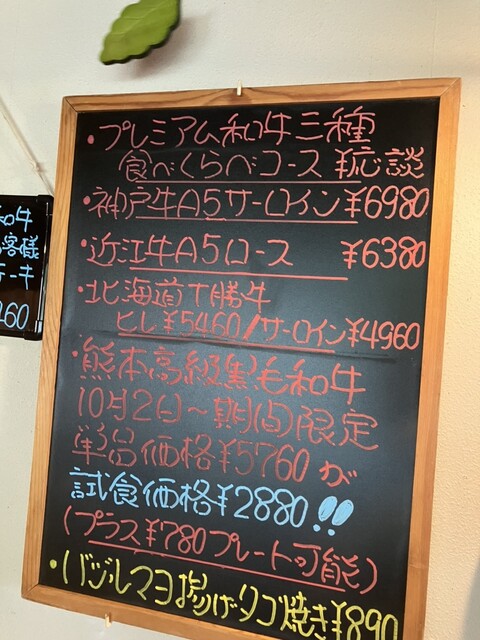 ・プレミアム和牛三種
食べくらべコース ¥応談
・神戸牛A5サーロイン¥6980
・近江牛A5ロース ¥6380
・北海道十勝牛
ヒレ¥5460/サーロイン¥4960
・熊本高級黒毛和牛
10月2日〜期間限定
単品価格¥5760が
試食価格¥2880!!
(プラス¥780プレート可能)
・バジルマヨ揚げタコ焼き¥890
和牛
客様
テーキ
460